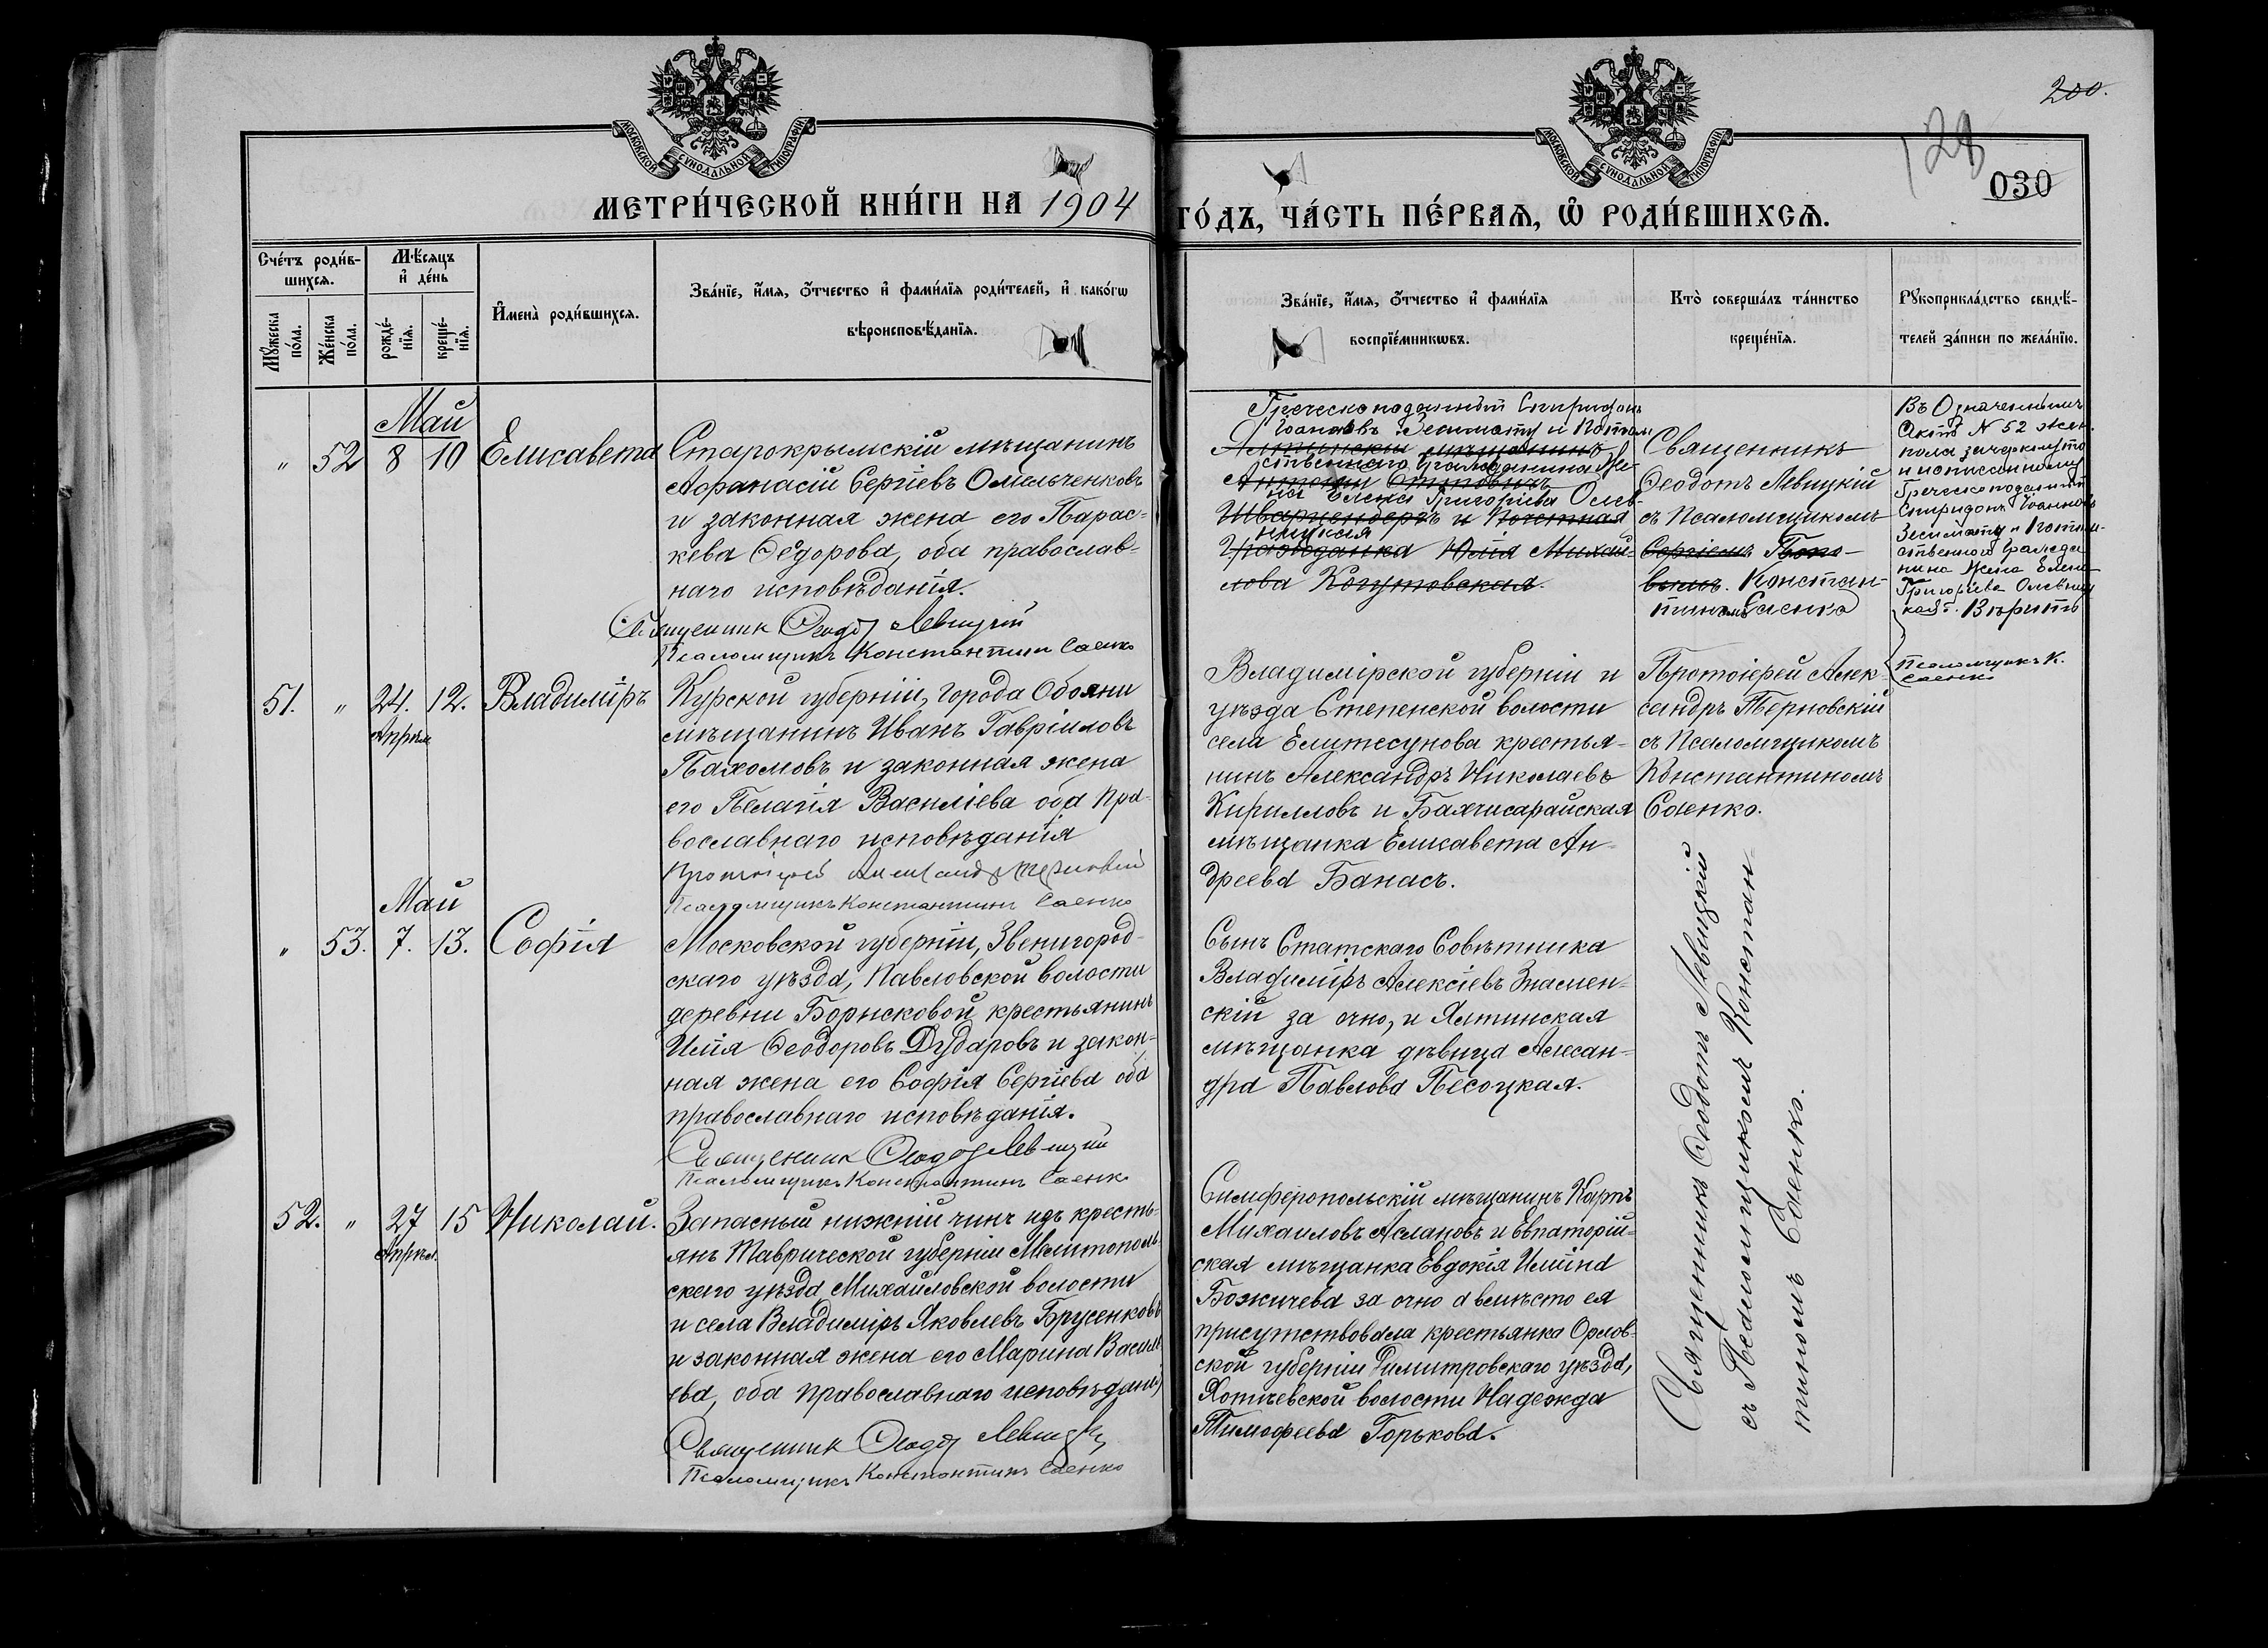 200.
128
030
МОСКОВСКОЙ СѴНОДАЛЬНОЙ ТИПОГРАФІИ
МОСКОВСКОЙ СѴНОДАЛЬНОЙ ТИПОГРАФІИ
МЕТРИ́ЧЕСКОЙ КНИ́ГИ НА 1904 ГО́ДЪ, ЧА́СТЬ ПЕ́РВАѦ, Ѡ҆ РОДИ́ВШИХСѦ.
Сче́тъ роди́в-
шихсѧ.
Мꙋ́жеска по́ла.
Же́нска по́ла.
Мѣ́сѧцъ
и҆ де́нь
рожде́-
нїѧ.
креще́-
нїѧ.
И҆мена̀ роди́вшихсѧ.
Зва́нїе, и҆́мѧ, ѻ҆́тчество и҆ фами́лїѧ роди́телей, и҆ како́гѡ
вѣроисповѣ́данїѧ.
Зва́нїе, и҆́мѧ, ѻ҆́тчество и҆ фами́лїѧ
воспрїе́мникѡвъ.
Кто̀ соверша́лъ та́инство
креще́нїѧ.
Рꙋкоприкла́дство свидѣ́-
телей за́писи по жела́нїю.
Май
„ 52 8 10 Елисавета
Старокрымскій мѣщанинъ
Аѳанасій Сергіевъ Омельченковъ
и законная жена его Парас-
кева Ѳеодорова, оба православ-
наго исповѣданія.
Священник Ѳеодот Левицкій
Псаломщикъ Константин Саенко
Греческоподанный Спиридонъ
Іоановъ Зесимату и Потом
Ялтинскій мѣщанинъ
ственнаго гражданина Же-
Антоній
на Елена Григоріева Олев
Шварценбергъ и Почетная
ницкая
Гражданка Юлія Михай-
лова Когутовская.
Священникъ
Ѳеодотъ Левицкій
съ Псаломщикомъ
Сергіемъ Попо-
вымъ. Констан-
тиномъ Саенко
Въ Означенномъ
Актѣ N 52 жен.
пола зачеркнуто
и написанному
Греческоподанный
Спиридонъ Іоанновъ
Зесимату и Потом-
ственного Гражда
нина Жена Елена
Григоріева Олевниц
кая. Вѣрить
Псаломщикъ К.
Саенко
51. „ 24. 12. Владиміръ
Апрѣля
Курской губерніи, города Обояни
мѣщанинъ Иванъ Гавріиловъ
Пахомовъ и законная жена
его Пелагія Василіева оба пра-
вославнаго исповѣданія
Протоіерей Александръ Терновскій
Псаломщикъ Константинъ Саенко
Владимірской губерніи и
уѣзда Степенской волости
села Елитесунова крестья-
нинъ Александръ Николаевъ
Кирилловъ и Бахчисарайская
мѣщанка Елисавета Ан-
дреева Банасъ.
Протоіерей Алек-
сандръ Терновскій
съ Псаломщикомъ
Константиномъ
Саенко.
Май
„ 53. 7. 13. Софія
Московской губерніи, Звенигород-
скаго уѣзда, Павловской волости
деревни Борисковой крестьянинъ
Илія Ѳеодоровъ Дударовъ и закон-
ная жена его Софія Сергіева оба
православнаго исповѣданія.
Священник Ѳеодот Левицкій
Псаломщикъ Константинъ Саенко
Сынъ Статскаго Совѣтника
Владиміръ Алексіевъ Знамен-
скій за очно, и Ялтинская
мѣщанка дѣвица Алексан-
дра Павлова Песоцкая.
Священникъ Ѳеодотъ Левицкій
съ Псаломщикомъ Констан-
тиномъ Саенко.
52. „ 27 15 Николай.
Апрѣл.
Запасный нижній чинъ изъ кресть-
янъ Таврической губерніи Мелитополь
скаго уѣзда Михайловской волости
и села Владиміръ Яковлевъ Брусенковъ
и законная жена его Марина Василь
ева, оба православнаго исповѣданія
Священник Ѳеодот Левицкій
Псаломщикъ Константинъ Саенко
Симферопольскій мѣщанинъ Карпъ
Михаиловъ Аслановъ и Евпаторій-
ская мѣщанка Евдокія Иліина
Божичева за очно а вмѣсто ея
присутствовала крестьянка Орлов-
ской губерніи Димитровскаго уѣзда,
Хотичевской волости Надежда
Тимоѳеева Горькова.